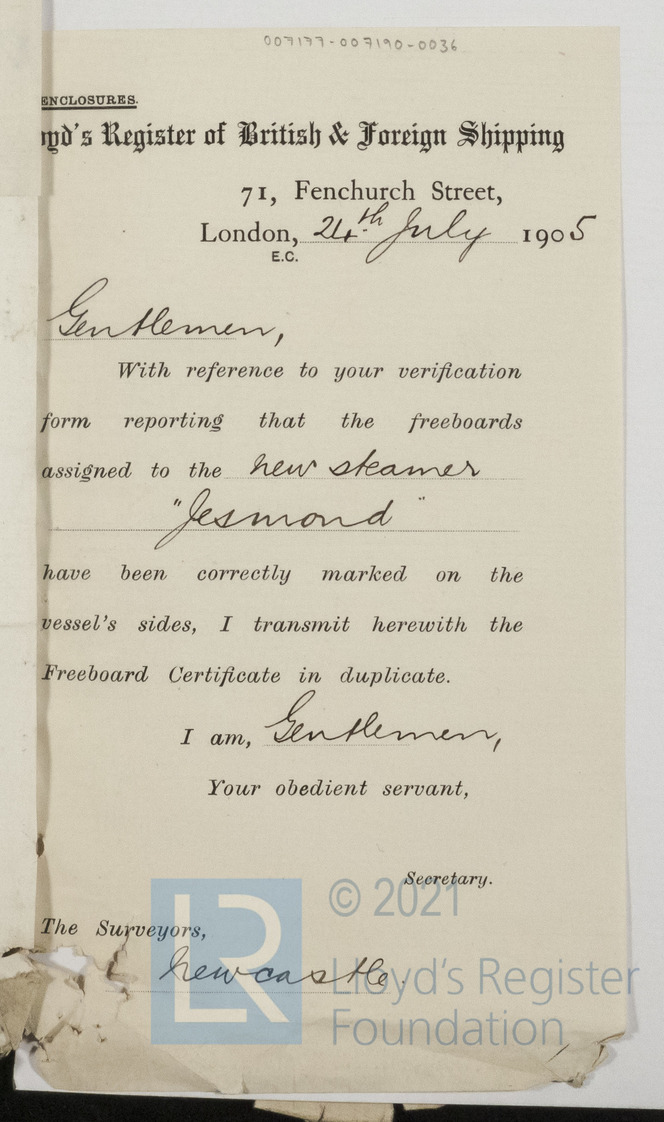 007177-007190-0036
ENCLOSURES.
oyd's Register of British & Foreign Shipping
71, Fenchurch Street,
London, 24th July 1905
E.C.
Gentlemen,
With reference to your verification
form reporting that the freeboards
assigned to the new steamer
"Jesmond"
have been correctly marked on the
vessel's sides, I transmit herewith the
Freeboard Certificate in duplicate.
I am, Gentlemen,
Your obedient servant,
Secretary.
The Surveyors,
Newcastle.
LR
© 2021
Lloyd's Register
Foundation